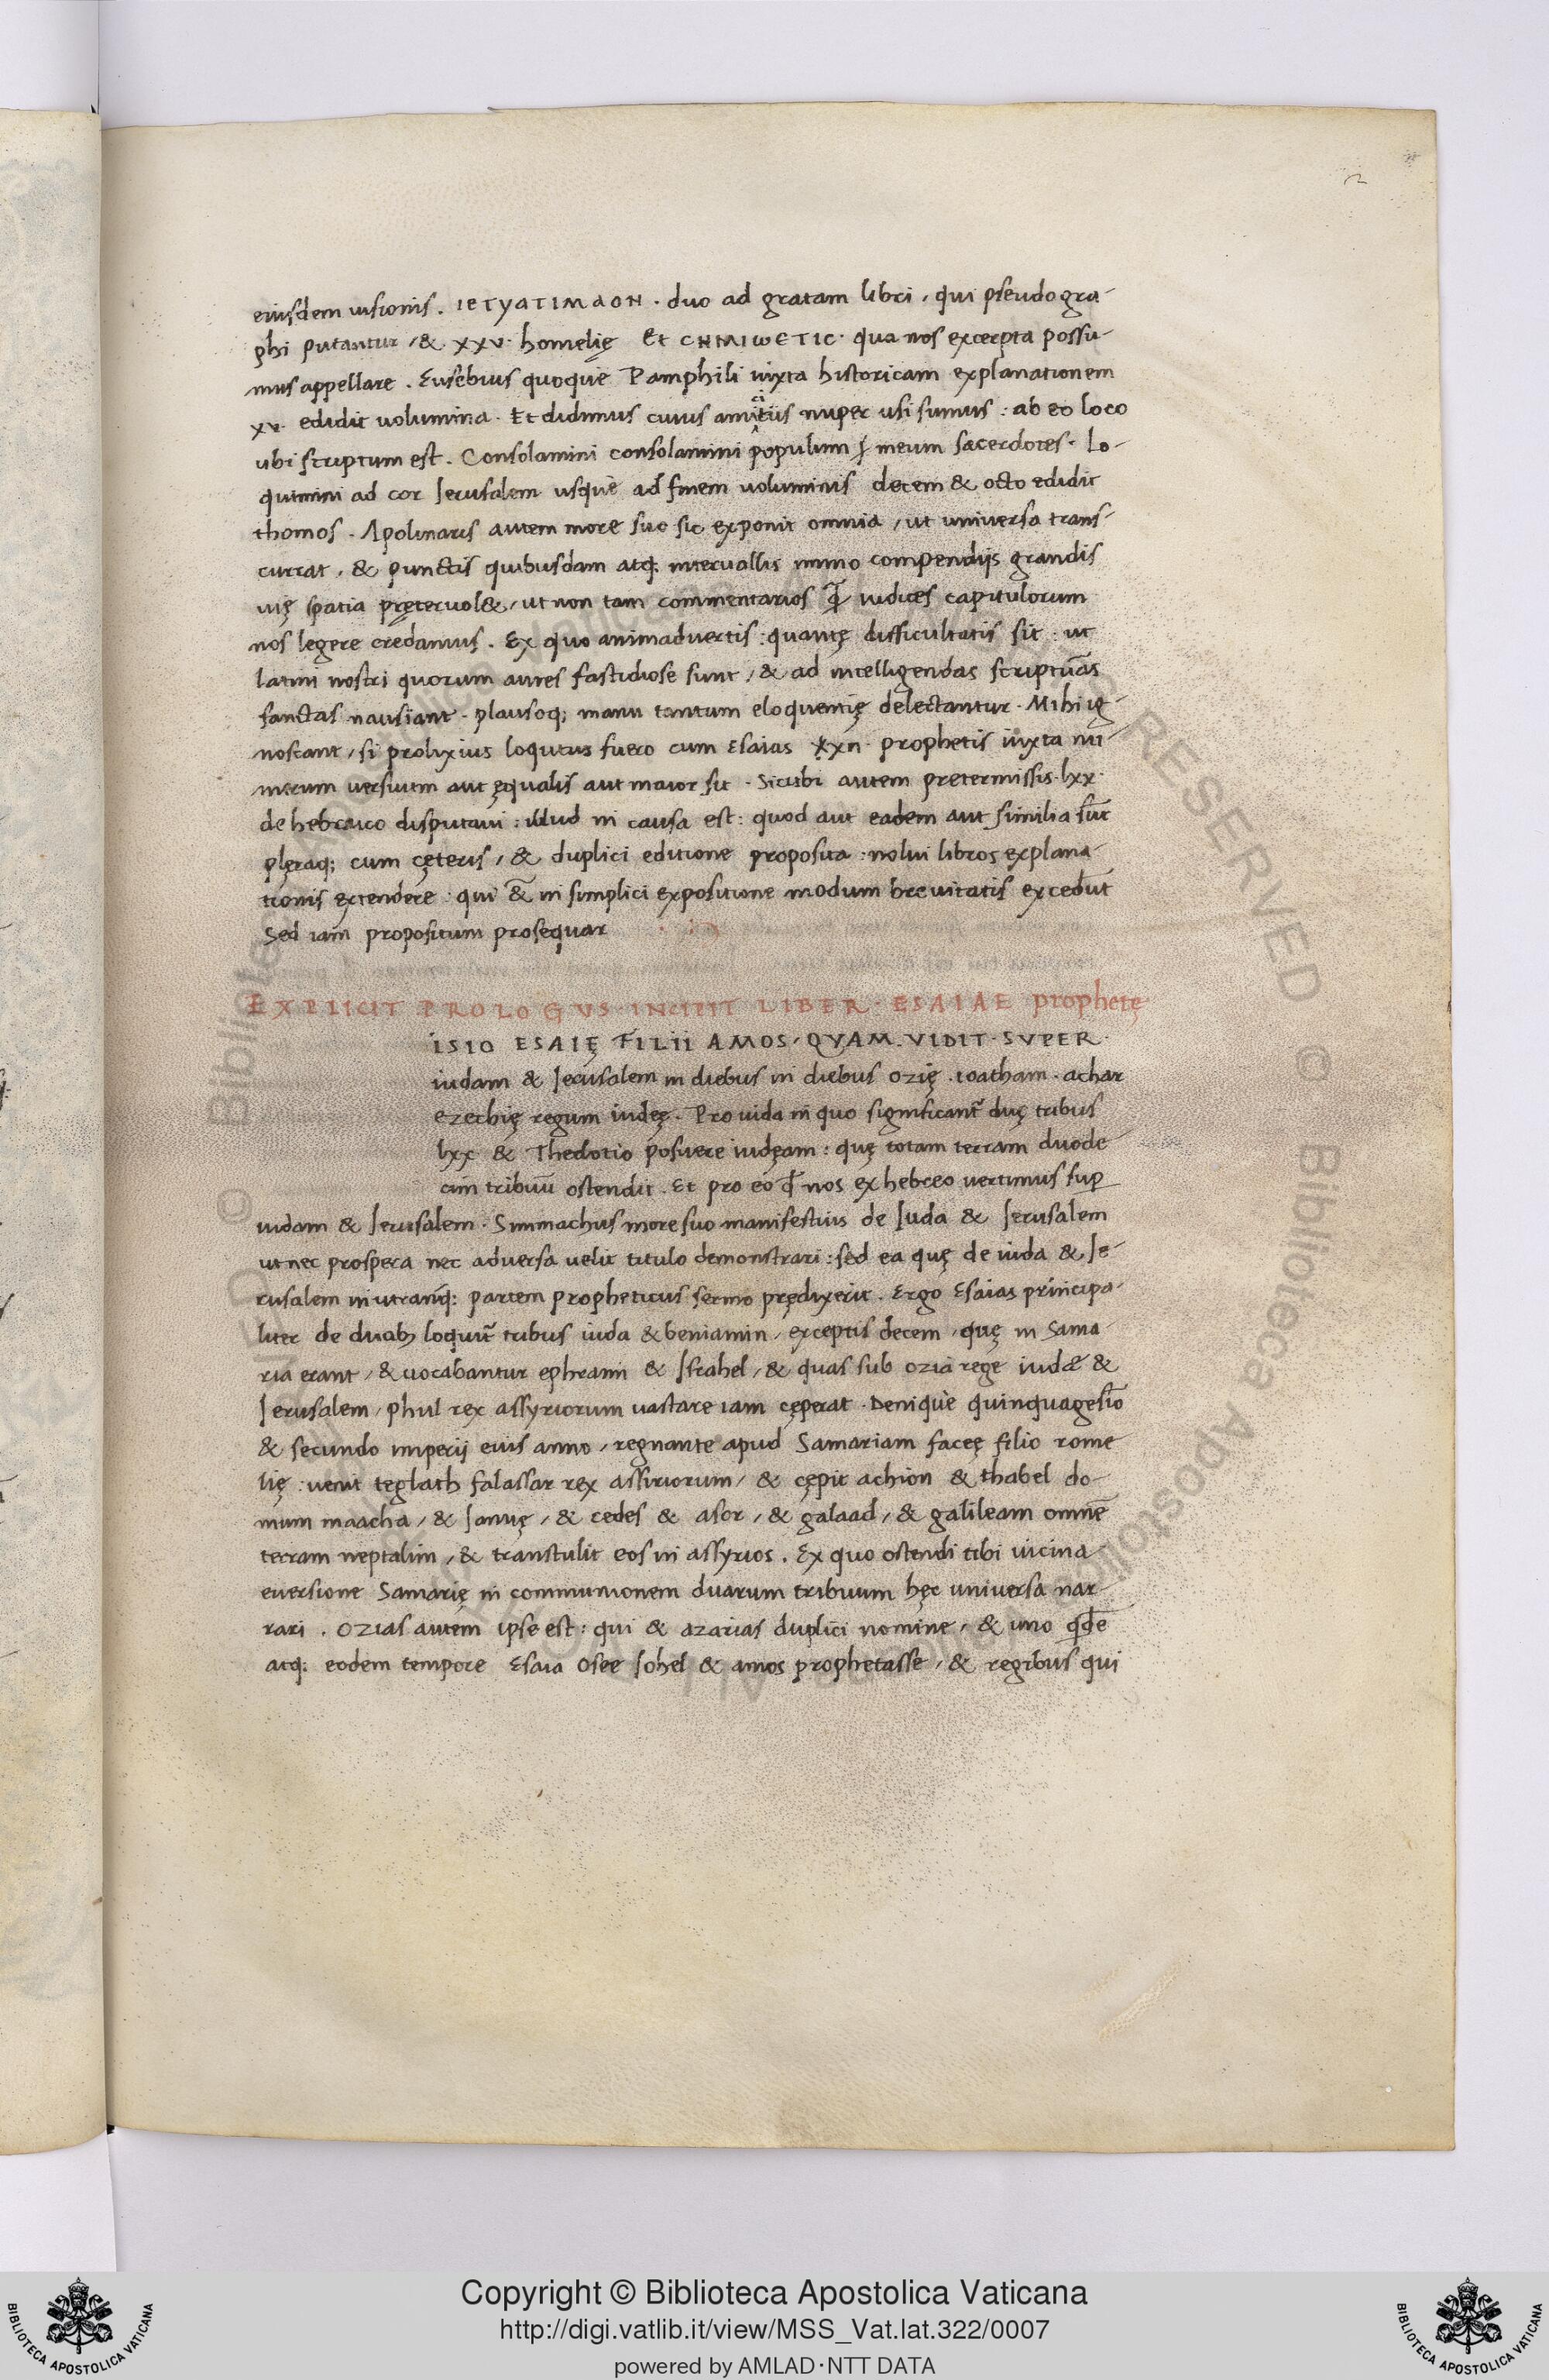 2
eiusdem uisionis . ιετyατιμαον . duo ad gratam libri , qui pseudogra-
phi putantur , & xxv . homelię Et CHMIωETIC . qua nos excerpta possu-
mus appellare . Eusebius quoque Pamphili iuxta historicam explanationem
xv . edidit uolumina . Et didimus cuius amicitiis nuper usi sumus : ab eo loco
ubi scriptum est . Consolamini consolamini populum meum sacerdotes . Lo-
quimini ad cor Jerusalem usque ad finem uoluminis decem & octo edidit
thomos . Apolinaris autem more suo sic exponit omnia , ut universa trans-
currat , & punctis quibusdam atq; interuallis immo compendijs grandis
uię spatia pręteruol& , ut non tam commentarios q̄ indices capitulorum
nos legere credamus . Ex quo animadvertis : quantę difficultatis sit : ut
latini nostri quorum aures fastidiose sunt , & ad intelligendas scriptūas
sanctas nausiant . plausoq; manu tantum eloquentię delectantur . Mihi ig-
noscant , si prolixius loqutus fuero cum Esaias xxii . prophetis iuxta nu-
merum versuum aut ęqualis aut maior sit . Sicubi autem pretermissis . lxx .
de hebraico disputaui : illud in causa est : quod aut eadem aut similia sūt
plęraq; cum cęteris , & duplici editione proposita : nolui libros explana-
tionis extendere : qui &̄ in simplici expositione modum breuitatis excedūt
Sed iam propositum prosequar
EXPLICIT PROLOGVS . INCIPIT LIBER . ESAIAE prophetę
ISIO ESAIĘ FILII AMOS . QVAM . VIDIT . SVPER .
iudam & Jerusalem in diebus in diebus ozię . ioatham . achar
ezechię regum iudęę . Pro uida in quo significant᷑ duę tribus
lxx & Thedotio posuere iudęam : quę totam terram duode
cim tribuū ostendit . Et pro eo qđ nos ex hebreo vertimus sup̲
iudam & Jerusalem . Simmachus more suo manifestius de Juda & Jerusalem
ut nec prospera nec adversa uelit titulo demonstrari : sed ea quę de iuda & Je-
rusalem in utranq; partem propheticus sermo prędixerit . Ergo Esaias principa-
liter de duab; loquit᷑ tribus iuda & beniamin , exceptis decem , quę in Sama-
ria erant , & uocabantur ephraim & Israhel , & quas sub ozia rege iudæ &
Jerusalem , phul rex assyriorum uastare iam cęperat . Denique quinquagesīo
& secundo imperij eius anno , regnante apud Samariam faceę filio rome
lię : uenit teglath falassar rex assiriorum , & cępit achion & thabel do-
mum maacha , & Januę , & cedes & asor , & galaad , & galileam omnē
terram neptalim , & transtulit eos in assyrios . Ex quo ostendi tibi uicina
euersione Samarię in communionem duarum tribuum hęc universa nar-
rari . Ozias autem ipse est : qui & azarias duplici nomine , & uno qđē
atq; eodem tempore Esaia Osee Johel & amos prophetasse , & regibus qui
© Biblioteca Apostolica Vaticana
ALL RIGHTS RESERVED
Copyright © Biblioteca Apostolica Vaticana
http://digi.vatlib.it/view/MSS_Vat.lat.322/0007
powered by AMLAD·NTT DATA
BIBLIOTECA APOSTOLICA VATICANA
BIBLIOTECA APOSTOLICA VATICANA